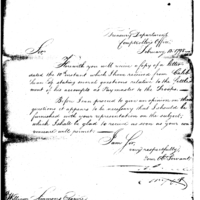 Treasury Department
Comptroller's Office
February 16. 1798
Sir,
Herewith you will receive a copy of a letter
dated the 10th instant which I have received from Caleb
by stating several questions relative to the Settle
ment of his accounts as Pay master to the Troops.
Before I can proceed to give an opinion on the
questions it appears to be necessary that I should be
furnished with your representation on the subject,
which I shall be glad to receive as soon as your con
venience will permit.
I am Sir,
very respectfully,
your Obt Servant
William Simmons Esquire